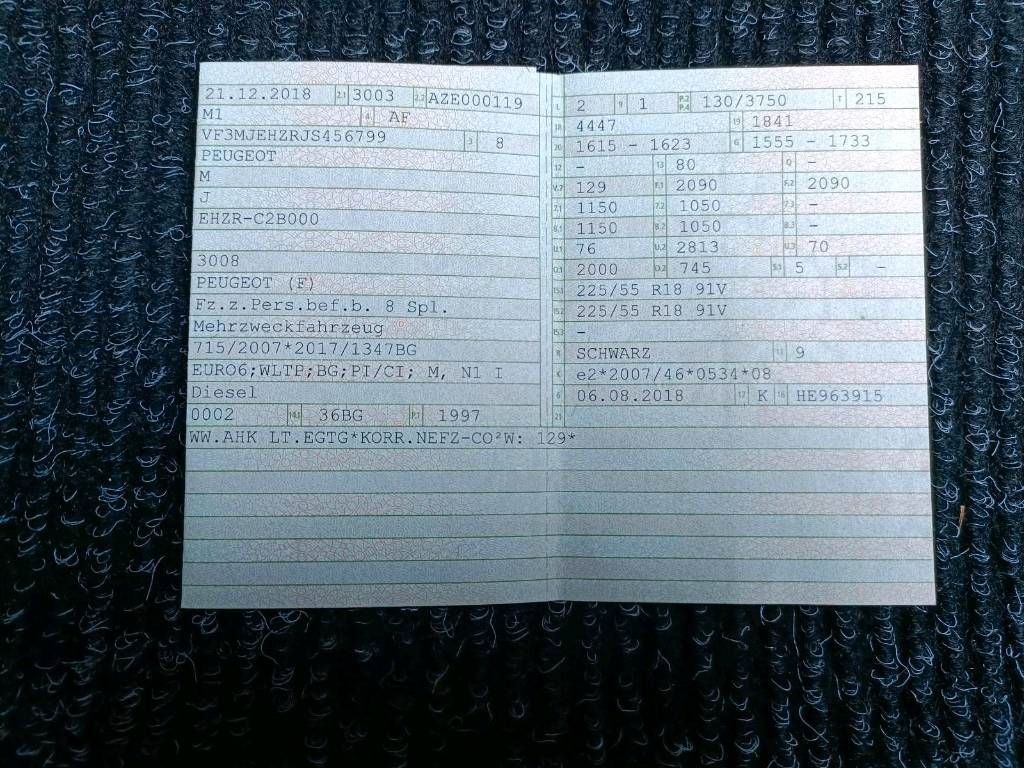 21.12.2018 2.1 3003 2.2 AZE000119
M1 4 AF
VF3MJEHZRJS456799 3 8
PEUGEOT
M
J
EHZR-C2B000
3008
PEUGEOT (F)
Fz.z.Pers.bef.b. 8 Spl.
Mehrzweckfahrzeug
715/2007*2017/1347BG
EURO6;WLTP;BG;PI/CI; M, N1 I
Diesel
0002 14.1 36BG P.1 1997
L 2 9 1 P.2 P.4 130/3750 T 215
18 4447 19 1841
20 1615 - 1623 G 1555 - 1733
12 - 13 80 Q -
V.7 129 F.1 2090 F.2 2090
7.1 1150 7.2 1050 7.3 -
8.1 1150 8.2 1050 8.3 -
U.1 76 U.2 2813 U.3 70
O.1 2000 O.2 745 S.1 5 S.2 -
15.1 225/55 R18 91V
15.2 225/55 R18 91V
15.3 -
R SCHWARZ 11 9
K e2*2007/46*0534*08
6 06.08.2018 17 K 16 HE963915
21
WW.AHK LT.EGTG*KORR.NEFZ-CO²W: 129*